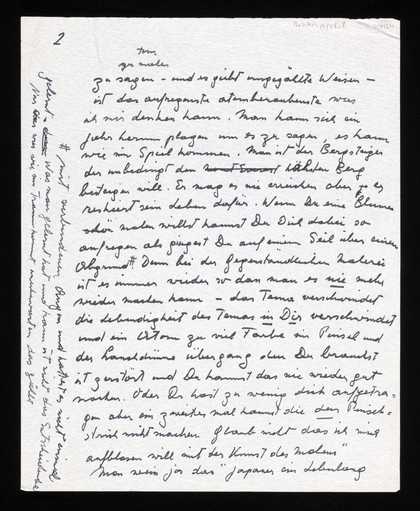 2
tun
zu malen
zu sagen - und es giebt ungezählte Weisen -
ist das aufregenste atemberaubenste was
ich mir denken kann. Man kann sich ein
Jahr herum plagen um es zu sagen, es kann
wie im Spiel kommen. Man ist der Bergsteiger
der unbedingt den höchsten Berg
besteigen will. Er mag es nie erreichen aber er
reskiert sein Leben dafür. Wenn Du eine Blume
schön malen willst kannst Du Dich dabei so
aufregen als giengest Du auf einem Seil über einen
Abgrund # Denn bei der Gegenständlichen Malerei
ist es immer wieder so dass man es nie mehr
wieder machen kann - das Tema verschwindet
die Lebendigkeit des Temas in Dir verschwindet
und ein Atom zu viel Farbe im Pinsel und
der hauchdünne Übergang den Du brauchst
ist zerstört und Du kannst das nie wieder gut
machen. Oder Du hast zu wenig dick aufgetra-
gen aber ein zweites mal kannst die den Pinsel-
strich nicht machen. Glaub nicht dass ich mich
aufblasen will mit der Kunst des Malens"
Man sein ja das "Japaner ein Lebenlang
# mit verbundenen Augen und hättest es nicht einmal
gelernt - Was man gelernt hat und kann ist nicht das Entscheidende
Nur was wie im Traum kommt das zählt